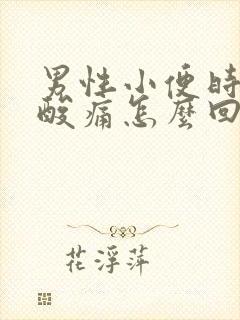 男性小便时
酸痛怎麼回
花浮萍